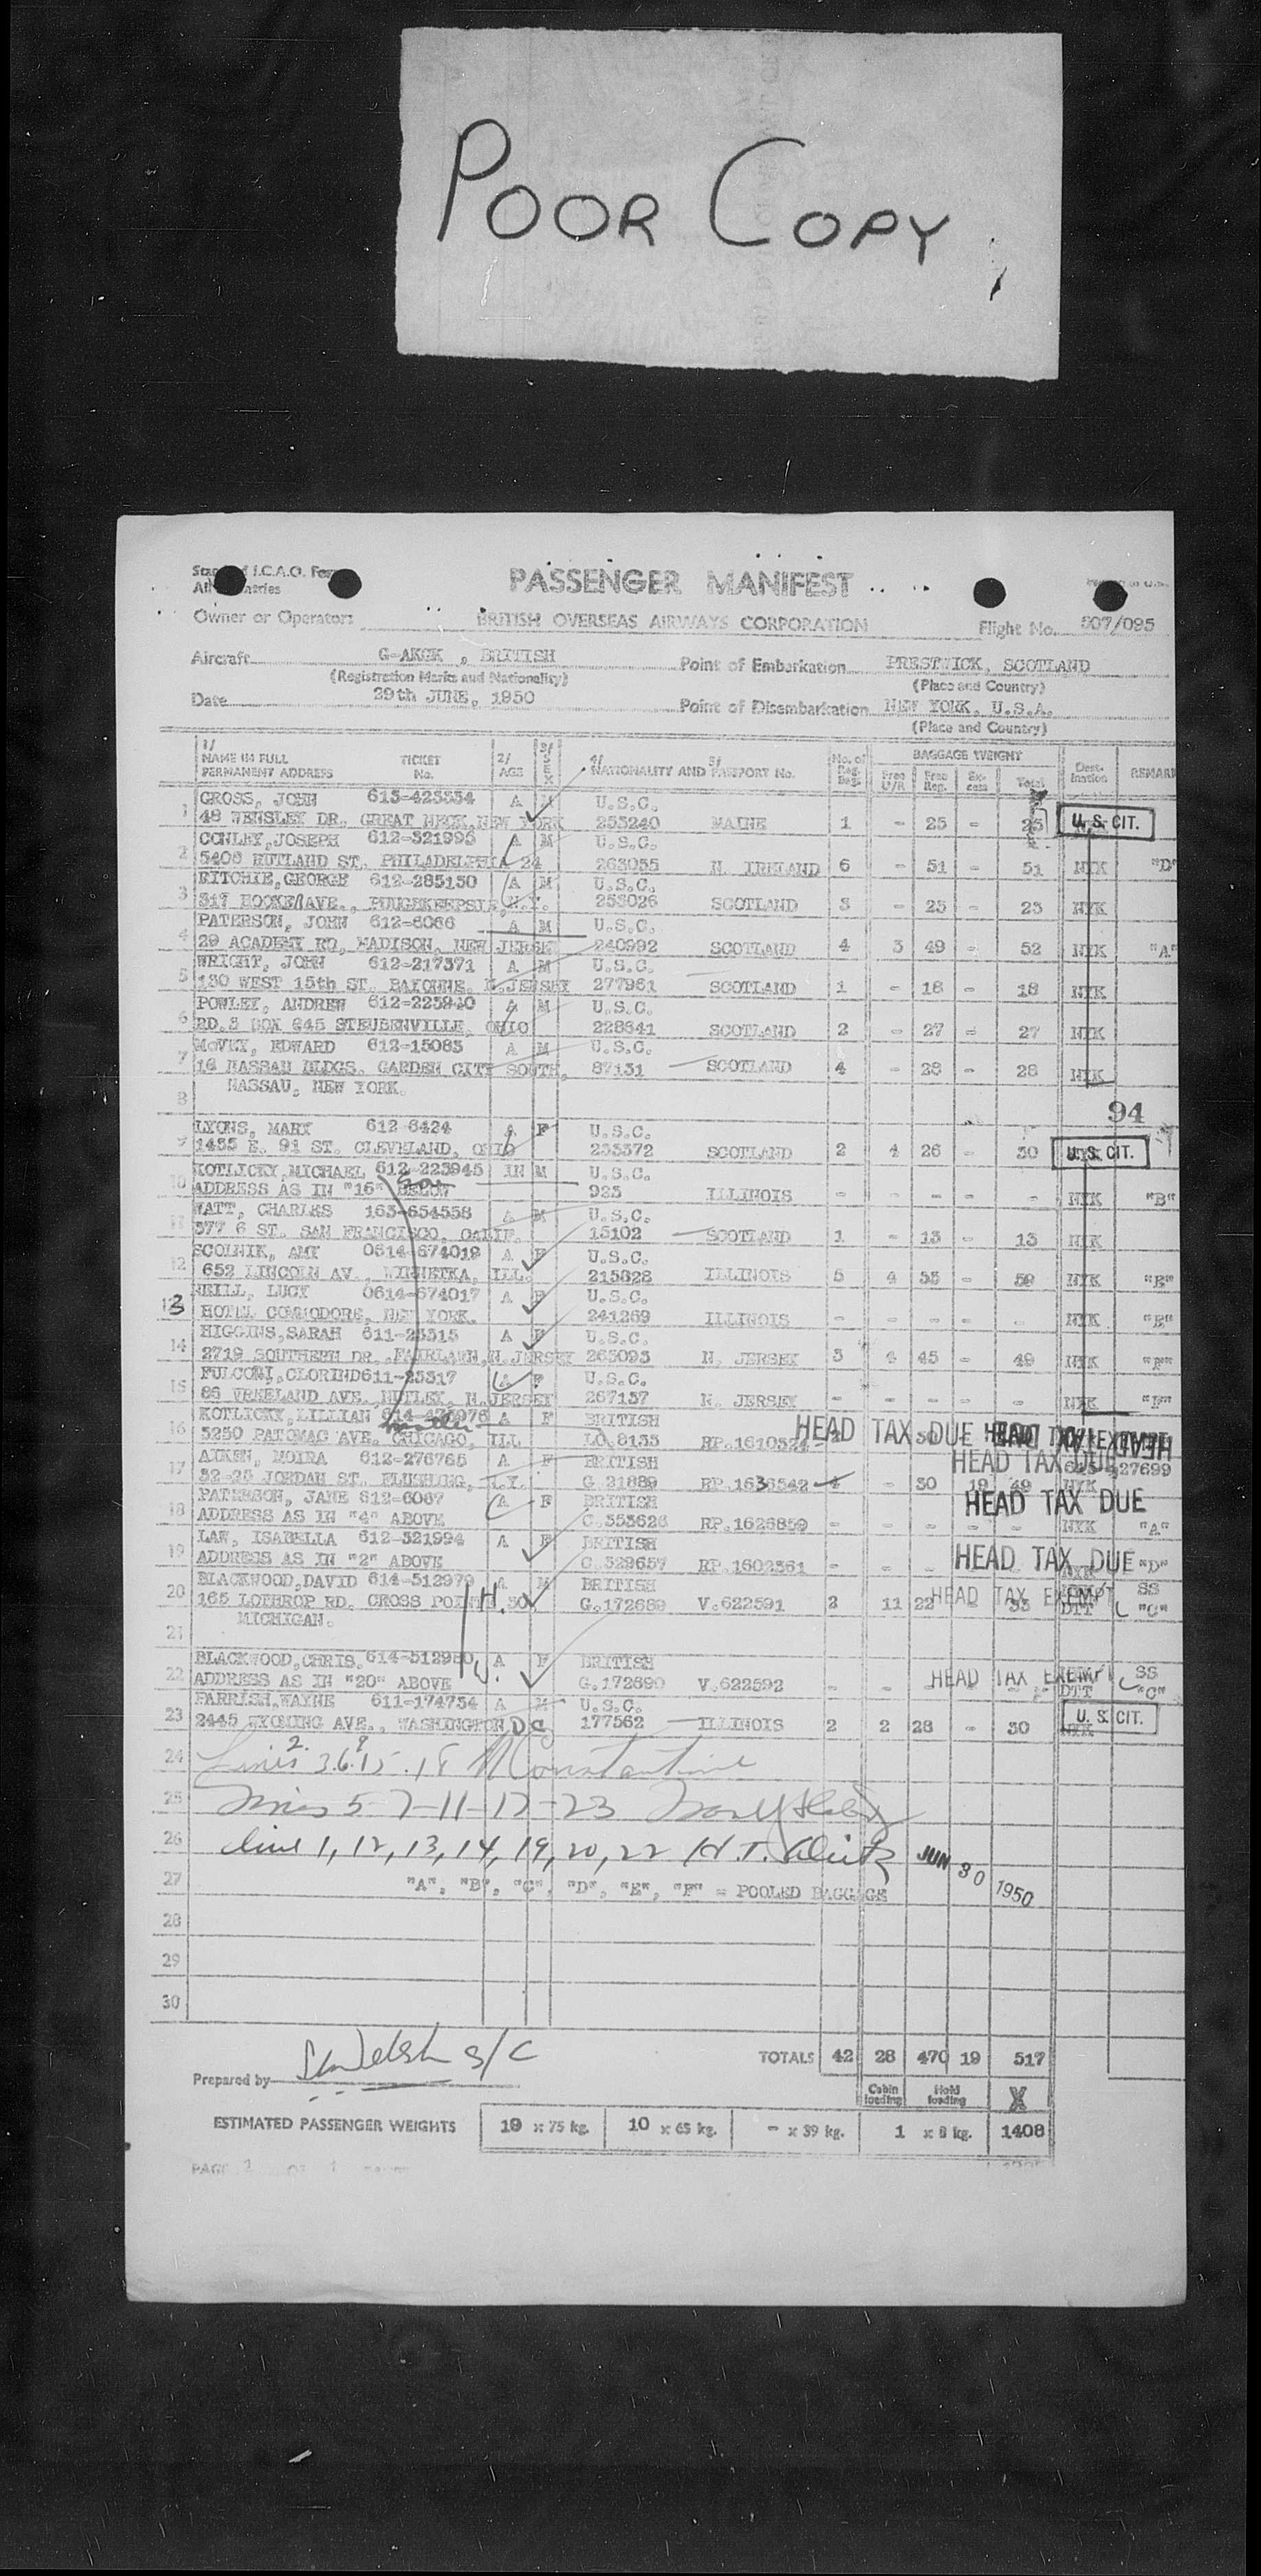 POOR COPY
PASSENGER MANIFEST
Owner or Operator: BRITISH OVERSEAS AIRWAYS CORPORATION Flight No. 507/095
Aircraft G-AKGK , BRITISH Point of Embarkation PRESTWICK, SCOTLAND
(Registration Marks and Nationality) (Place and Country)
Date 29th JUNE, 1950 Point of Disembarkation NEW YORK, U.S.A.
(Place and Country)
1/ NAME IN FULL PERMANENT ADDRESS TICKET No. 2/ AGE 3/ SEX 4/ NATIONALITY AND 5/ PASSPORT No. No. of Reg. Bags. BAGGAGE WEIGHT Free U/R Free Reg. Ex-cess Total Destination REMARK
1 GROSS, JOHN A M U.S.C.
48 WENSLEY DR. GREAT NECK, NEW YORK 253240 MAINE 1 - 25 - 25 U.S. CIT.
2 CONLEY, JOSEPH 612-321995 A M U.S.C.
5408 RUTLAND ST. PHILADELPHIA 24 263055 N. IRELAND 6 - 51 - 51 NYK "D"
3 RITCHIE, GEORGE 612-285150 A M U.S.C.
AVE., N.Y. 253026 SCOTLAND 3 - 23 - 23 NYK
4 PATERSON, JOHN 612-6066 A M U.S.C.
29 ACADEMY RD, MADISON, NEW JERSE 240992 SCOTLAND 4 3 49 - 52 NYK "A"
5 WRIGHT, JOHN 612-217371 A M U.S.C.
130 WEST 15th ST. BAYONNE. N.JERSEY 277961 SCOTLAND 1 - 18 - 18 NYK
6 POWLEY, ANDREW 612-225940 A M U.S.C.
RD.3 BOX 645 STEUBENVILLE, OHIO 228641 SCOTLAND 2 - 27 - 27 NYK
7 McVEY, EDWARD 612-15083 A M U.S.C.
16 NASSAU BLDGS. GARDEN CITY SOUTH, 87131 SCOTLAND 4 - 28 - 28 NYK
8 NASSAU, NEW YORK.
94
9 LYONS, MARY 612-6424 A F U.S.C.
1435 E. 91 ST. CLEVELAND, OHIO 233372 SCOTLAND 2 4 26 - 30 U.S. CIT.
10 KOTLICKY, MICHAEL 612-223945 IN M U.S.C.
ADDRESS AS IN "16" BELOW 923 ILLINOIS - - - - - NYK "B"
11 WATT, CHARLES 163-654558 A M U.S.C.
377 6 ST. SAN FRANCISCO, CALIF. 15102 SCOTLAND 1 - 13 - 13 NYK
12 SCOLNIK, AMY 0614-674019 A F U.S.C.
652 LINCOLN AV., WINNETKA, ILL. 215828 ILLINOIS 5 4 55 - 59 NYK "E"
13 NEILL, LUCY 0614-674017 A F U.S.C.
HOTEL COMMODORE, NEW YORK. 241269 ILLINOIS - - - - - NYK "E"
14 HIGGINS, SARAH 611-25315 A F U.S.C.
2719 SOUTHERN DR., FAIRLAWN, N.JERSEY 263093 N. JERSEY 3 4 45 - 49 NYK "F"
15 A F U.S.C.
86 VREELAND AVE., NUTLEY, N.JERSEY 267137 N. JERSEY - - - - - NYK "F"
16 KOTLICKY, LILLIAN A F BRITISH
5250 POTOMAC AVE. CHICAGO, ILL HEAD TAX DUE
17 AIKEN, MOIRA 612-276765 A F BRITISH HEAD TAX DUE
32-25 JORDAN ST. FLUSHING, N.Y. G 21889 RP.1636542 4 - 30 19 49 NYK
18 PATERSON, JANE 612-6067 A F BRITISH HEAD TAX DUE
ADDRESS AS IN "4" ABOVE C.353626 RP.1626859 - - - - - NYK "A"
19 LAW, ISABELLA 612-321994 A F BRITISH
ADDRESS AS IN "2" ABOVE C.329657 RP.1602361 - - HEAD TAX DUE "D"
20 BLACKWOOD, DAVID 614-512979 A M BRITISH
165 LOTHROP RD. CROSS POINTE 30 G.172689 V.622591 2 11 22 HEAD TAX EXEMPT 33 DTT SS "C"
21 MICHIGAN.
22 BLACKWOOD, CHRIS. 614-512980 A F BRITISH
ADDRESS AS IN "20" ABOVE G.172690 V.622592 - - HEAD TAX EXEMPT DTT SS "C"
23 PARRISH, WAYNE 611-174754 A M U.S.C.
2445 WYOMING AVE., WASHINGTON DC 177562 ILLINOIS 2 2 28 - 30 U.S. CIT.
24
25 Lines 5-7-11-17-23
26 line 1, 12, 13, 14, 19, 20, 22 JUN 30 1950
27 "A", "B", "C", "D", "E", "F" = POOLED BAGGAGE
28
29
30
Prepared by S/C TOTALS 42 28 470 19 517
Cabin loading Hold loading X
ESTIMATED PASSENGER WEIGHTS 19 x 75 kg. 10 x 65 kg. - x 39 kg. 1 x 8 kg. 1408